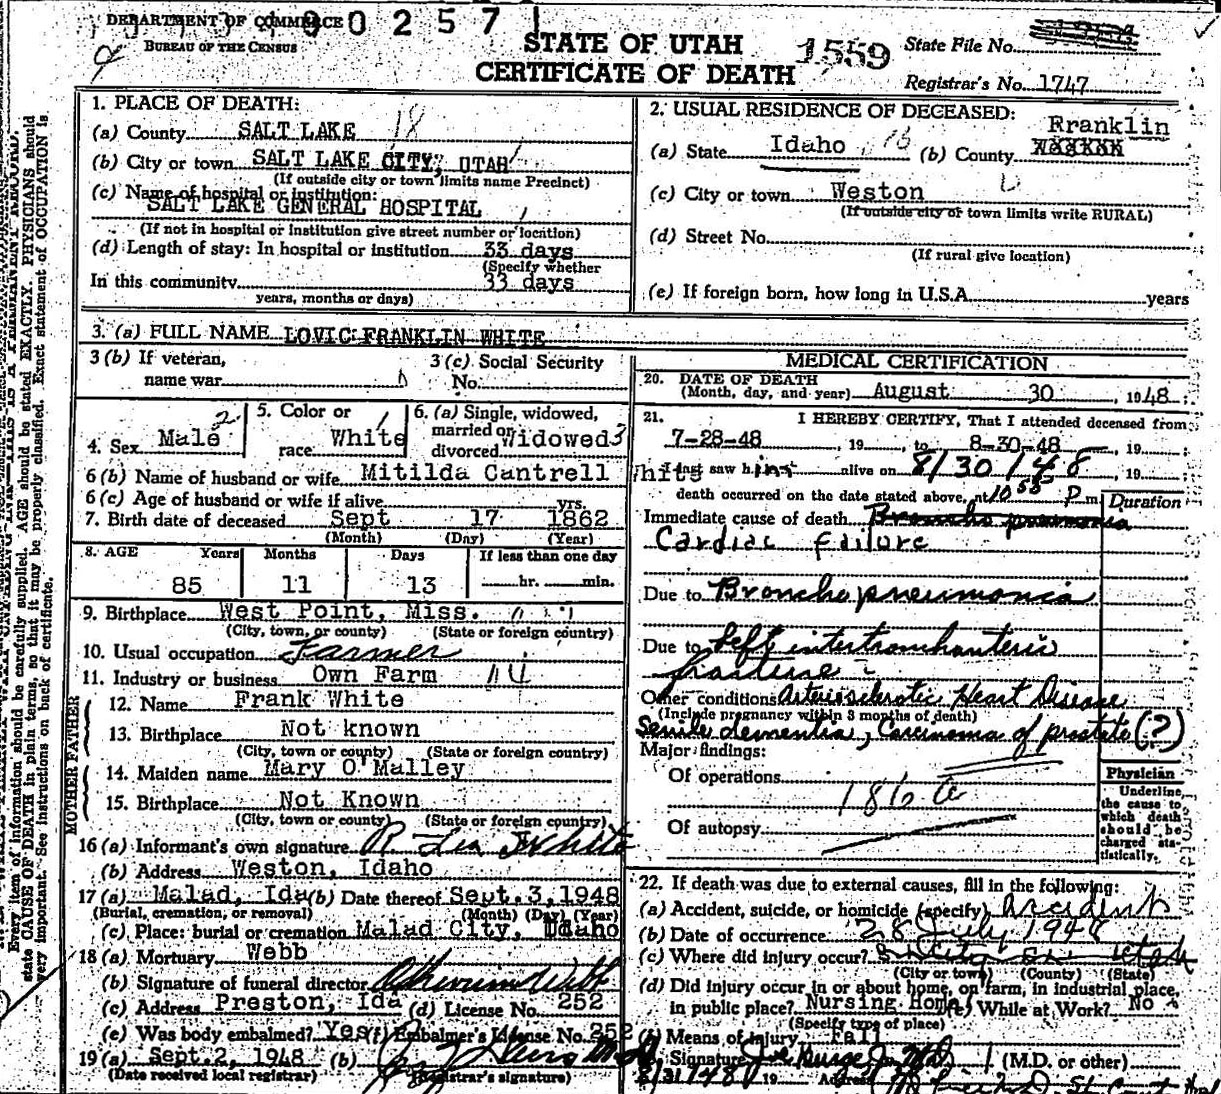 DEPARTMENT OF COMMERCE
0 0 2 5 7 1
BUREAU OF THE CENSUS
STATE OF UTAH
CERTIFICATE OF DEATH
1559
State File No.
Registrar's No. 1747
Every item of information should be carefully supplied. AGE should be stated EXACTLY. PHYSICIANS should
state CAUSE OF DEATH in plain terms, so that it may be properly classified. Exact statement of OCCUPATION is
very important. See instructions on back of certificate.
1. PLACE OF DEATH:
(a) County SALT LAKE 18
(b) City or town SALT LAKE CITY, UTAH
(If outside city or town limits name Precinct)
(c) Name of hospital or institution:
SALT LAKE GENERAL HOSPITAL
(If not in hospital or institution give street number or location)
(d) Length of stay: In hospital or institution 33 days
(Specify whether
In this community 33 days
years, months or days)
2. USUAL RESIDENCE OF DECEASED:
Franklin
(a) State Idaho (b) County
(c) City or town Weston
(If outside city or town limits write RURAL)
(d) Street No.
(If rural give location)
(e) If foreign born, how long in U.S.A. years
3. (a) FULL NAME LOVIC FRANKLIN WHITE
3 (b) If veteran,
name war
3 (c) Social Security
No.
4. Sex Male 2
5. Color or
race White
6. (a) Single, widowed,
married or
divorced Widowed 3
6 (b) Name of husband or wife Mitilda Cantrell White
6 (c) Age of husband or wife if alive yrs.
7. Birth date of deceased Sept 17 1862
(Month) (Day) (Year)
8. AGE Years Months Days If less than one day
85 11 13 hr. min.
9. Birthplace West Point, Miss.
(City, town, or county) (State or foreign country)
10. Usual occupation Farmer
11. Industry or business Own Farm
FATHER
12. Name Frank White
13. Birthplace Not known
(City, town or county) (State or foreign country)
MOTHER
14. Maiden name Mary O'Malley
15. Birthplace Not Known
(City, town or county) (State or foreign country)
16 (a) Informant's own signature R. Lea White
(b) Address Weston, Idaho
17 (a) Malad, Ida (b) Date thereof Sept. 3, 1948
(Burial, cremation, or removal) (Month) (Day) (Year)
(c) Place: burial or cremation Malad City, Idaho
18 (a) Mortuary Webb
(b) Signature of funeral director Webb
(c) Address Preston, Ida (d) License No. 252
(e) Was body embalmed? Yes (f) Embalmer's License No. 252
19 (a) Sept. 2, 1948 (b)
(Date received local registrar) (Registrar's signature)
MEDICAL CERTIFICATION
20. DATE OF DEATH
(Month, day, and year) August 30, 1948
21. I HEREBY CERTIFY, That I attended deceased from
7-28-48 19 , to 8-30-48 , 19
I last saw him alive on 8/30/48 , 19
death occurred on the date stated above, at 10 55 P m
Duration
Immediate cause of death Broncho pneumonia
Cardiac failure
Due to Broncho pneumonia
Due to Left intertrochanteric
fracture
Other conditions Arteriosclerotic Heart Disease
(Include pregnancy within 3 months of death)
Senile dementia, Carcinoma of prostate (?)
Major findings:
Of operations
186 a
Of autopsy
Physician
Underline
the cause to
which death
should be
charged sta-
tistically.
22. If death was due to external causes, fill in the following:
(a) Accident, suicide, or homicide (specify) Accident
(b) Date of occurrence 28 July 1948
(c) Where did injury occur? Utah
(City or town) (County) (State)
(d) Did injury occur in or about home, on farm, in industrial place,
in public place? Nursing Home (e) While at Work? No
(Specify type of place)
(f) Means of injury Fall
Signature M.D. (M.D. or other)
8/31/48 19 Address